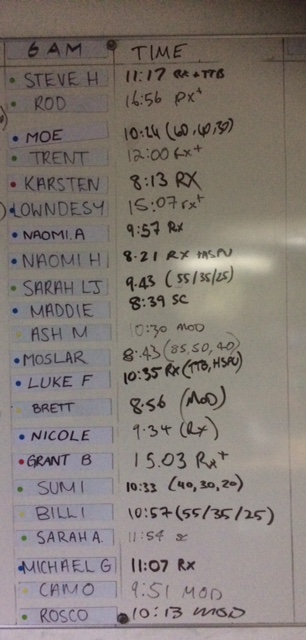 6 AM TIME
STEVE H 11:17 RX + TTB
ROD 16:56 RX+
MOE 10:24 (60,40,30)
TRENT 12:00 RX+
KARSTEN 8:13 RX
LOWNDESY 15:07 rx+
NAOMI.A 9:57 Rx
NAOMI H 8.21 RX + HSPU
SARAH LJ 9.43 (55/35/25)
MADDIE 8:39 SC
ASH M 10:30 MOD
MOSLAR 8:43 (85,50,40)
LUKE F 10:35 RX (TTB, HSPU)
BRETT 8:56 (MOD)
NICOLE 9.34 (Rx)
GRANT B 15.03 Rx+
SUMI 10:33 (40,30,20)
BILLI 10:57 (55/35/25)
SARAH A. 11:54 sc
MICHAEL G 11:07 Rx
CAMO 9:51 MOD
ROSCO 10:13 MOD